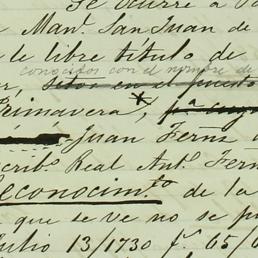 Se ocurre a
Manl. San Juan de
le libre titulo de
conocidos con el nombre de
Primavera,* 
Juan Ferns
scribo. Real Anto. Fern
econocim.to de la
que se ve no se p
ulio 13/1730 f.